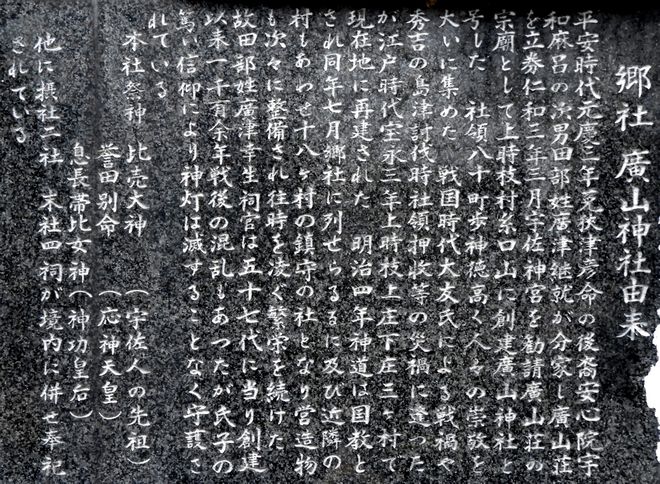 郷社 廣山神社由来
平安時代元慶三年菟狹津彦命の後裔安心院宇
和麻呂の次男田部姓廣津継就が分家し廣山荘
を立券仁和三年三月宇佐神宮を勧請廣山荘の
宗廟として上時枝村糸口山に創建廣山神社と
号した 社領八十町歩神徳高く人々の崇敬を
大いに集めた 戦国時代大友氏による戦禍や
秀吉の島津討伐時社領押收等の災禍に逢った
が江戸時代宝永三年上時枝上庄下庄三ヶ村で
現在地に再建された 明治四年神道は国教と
され同年七月郷社に列せらるるに及び近隣の
村もあわせ十八ヶ村の鎮守の社となり営造物
も次々に整備され往時を凌ぐ繁栄を続けた
故田部姓廣津幸生祠官は五十七代に当り創建
以来一千百余年戦後の混乱もあつたが氏子の
篤い信仰により神灯は滅することなく守護さ
れている
本社祭神 比売大神 (宇佐人の先祖)
誉田別命 (応神天皇)
息長帯比女神(神功皇后)
他に摂社二社 末社四祠が境内に併せ奉祀
されている